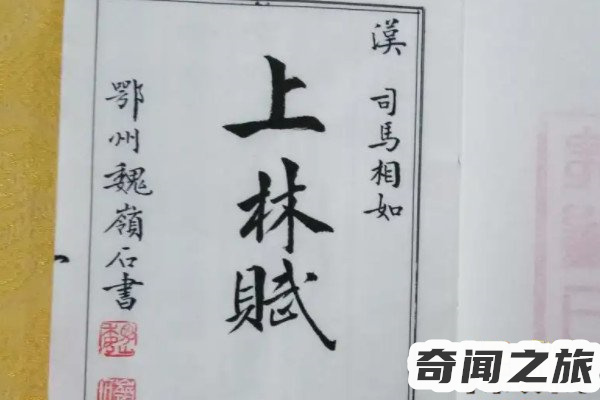 漢 司馬相如
上林賦
鄂州魏嶺石書
奇闻之旅